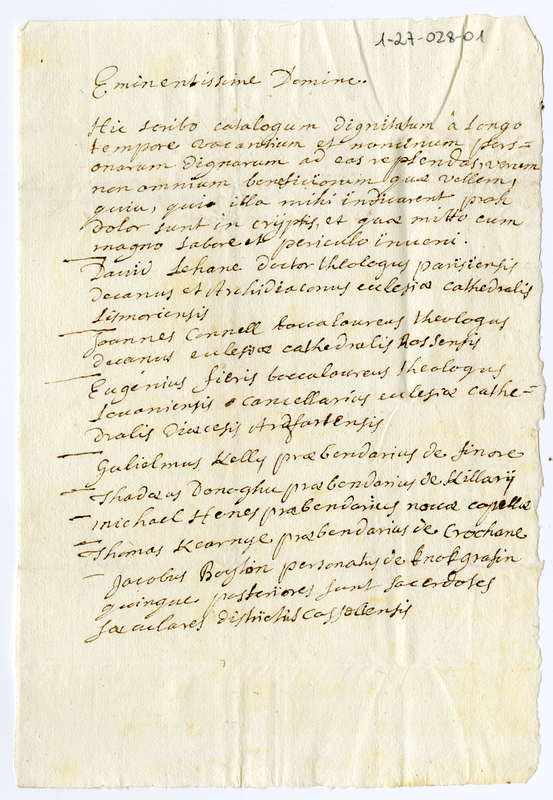 1-27-028-01
Eminentissime Domine.
Hic scribo catalogum dignitatum à longo
tempore vacantium et nominum pers-
onarum dignarum ad eas replendas, verum
non omnium beneficiorum quæ vellem,
quia, qui illa mihi indicarent proh
dolor sunt in cryptis, et quæ mitto cum
magno labore et periculo inveni.
David Lehane doctor theologus parisiensis
decanus et Archidiaconus ecclesiæ cathedralis
Lismoriensis
Joannes Connell baccalaureus theologus
decanus ecclesiæ cathedralis Rossensis
Eugenius fieris baccalaureus theologus
Lovaniensis cancellarius ecclesiæ cathe=
dralis Diœcesis Ardfartensis
Gulielmus Kelly præbendarius de finore
Thadæus Donoghu præbendarius de Killarij
michael Henes præbendarius novæ capellæ
Thomas Kearnye præbendarius de Crochane
Jacobus Boyton personatus de knokgrafin
quinque posteriores sunt sacerdotes
sæculares districtus Cassellensis